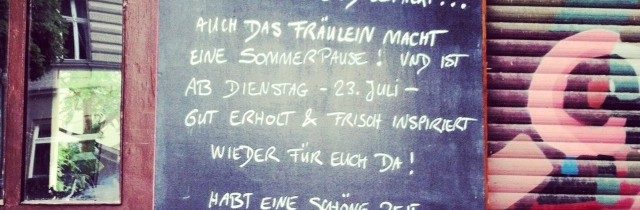 AUCH DAS FRÄULEIN MACHT
EINE SOMMERPAUSE! UND IST
AB DIENSTAG - 23. JULI -
GUT ERHOLT & FRISCH INSPIRIERT
WIEDER FÜR EUCH DA!
HABT EINE SCHÖNE ZEIT